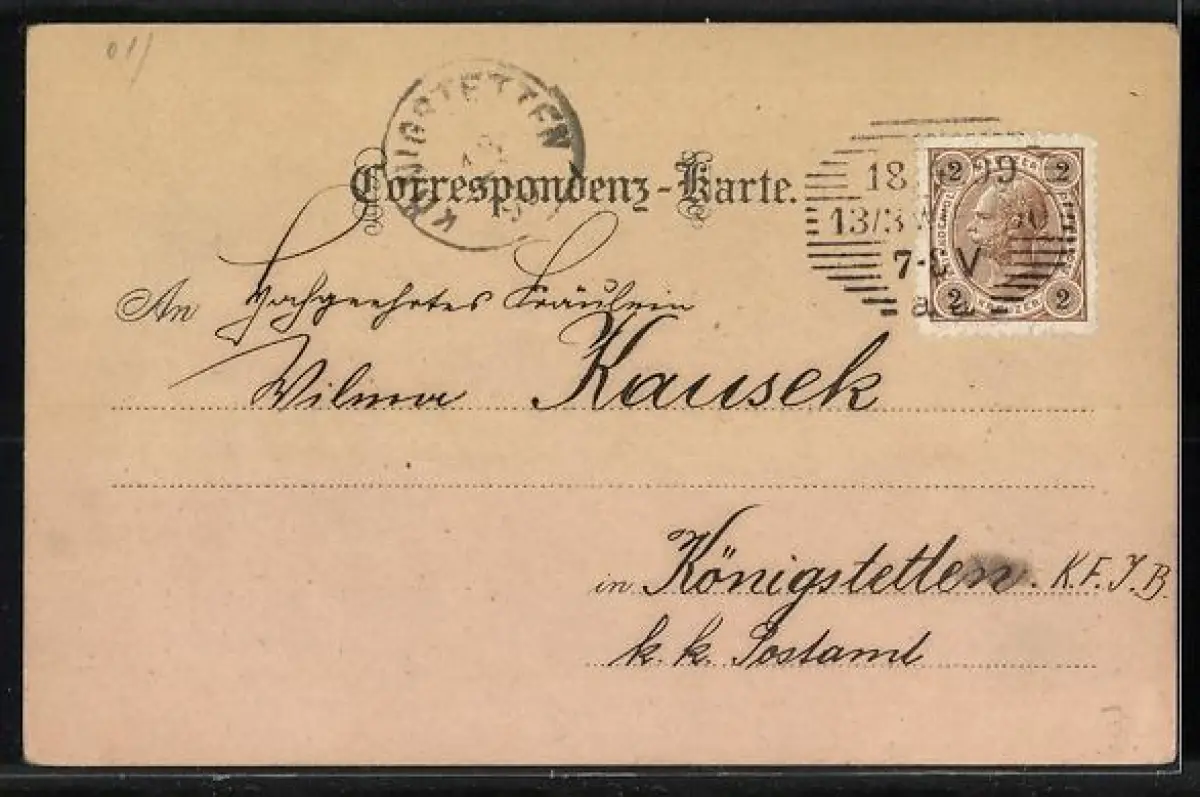 01)
KÖNIGSTETTEN
Correspondenz-Karte.
18 99
13/3
7-8 V
2 KREUZER 2
2 KREUZER 2
An Hochgeehrtes Fräulein
Wilma Kausek
in Königstetten. K.F.J.B.
k. k. Postamt